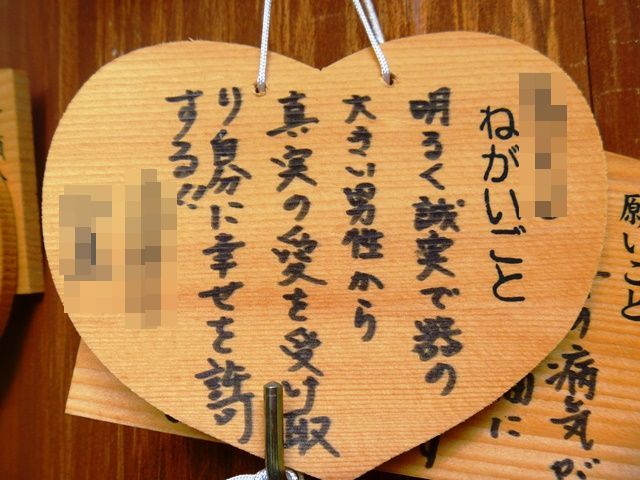 ねがいごと
明るく誠実で器の
大きい男性から
真実の愛を受け取
り自分に幸せを許可
する!!
願いごと
病気が
に
す